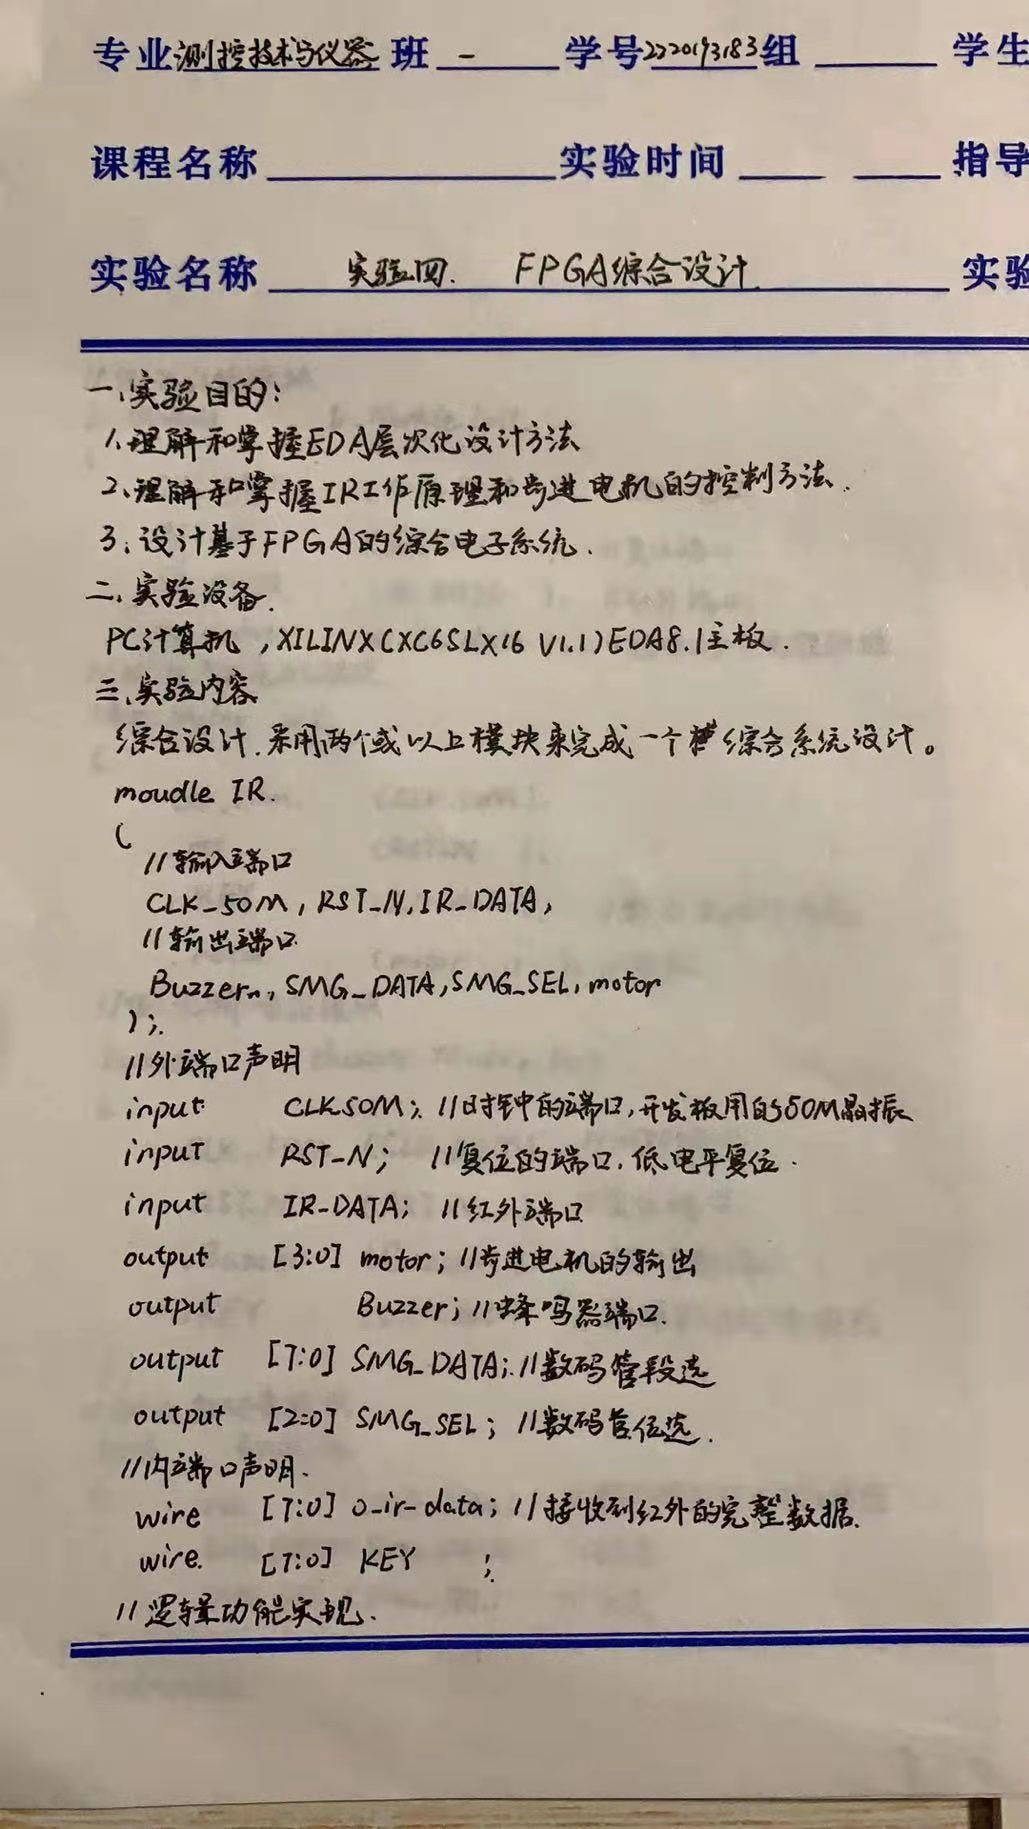 专业 测控技术与仪器 班 一 学号 2220193183 组 学生
课程名称 实验时间 指导
实验名称 实验四. FPGA综合设计 实验
一、实验目的:
1、理解和掌握EDA层次化设计方法
2、理解和掌握IR工作原理和步进电机的控制方法.
3、设计基于FPGA的综合电子系统.
二、实验设备.
PC计算机,XILINX(XC6SLX16 V1.1)EDA8.1主板.
三、实验内容
综合设计.采用两个或以上模块来完成一个综合系统设计。
moudle IR.
(
//输入端口
CLK_50M, RST_N, IR_DATA,
//输出端口
Buzzer, SMG_DATA, SMG_SEL, motor
);
//外端口声明
input CLK50M; //时钟的端口,开发板用的50M晶振
input RST-N; //复位的端口,低电平复位.
input IR-DATA; //红外端口
output [3:0] motor; //步进电机的输出
output Buzzer; //蜂鸣器端口.
output [7:0] SMG_DATA; //数码管段选
output [2:0] SMG_SEL; //数码管位选.
//内端口声明.
wire [7:0] o-ir-data; //接收到红外的完整数据.
wire. [7:0] KEY ;
//逻辑功能实现.